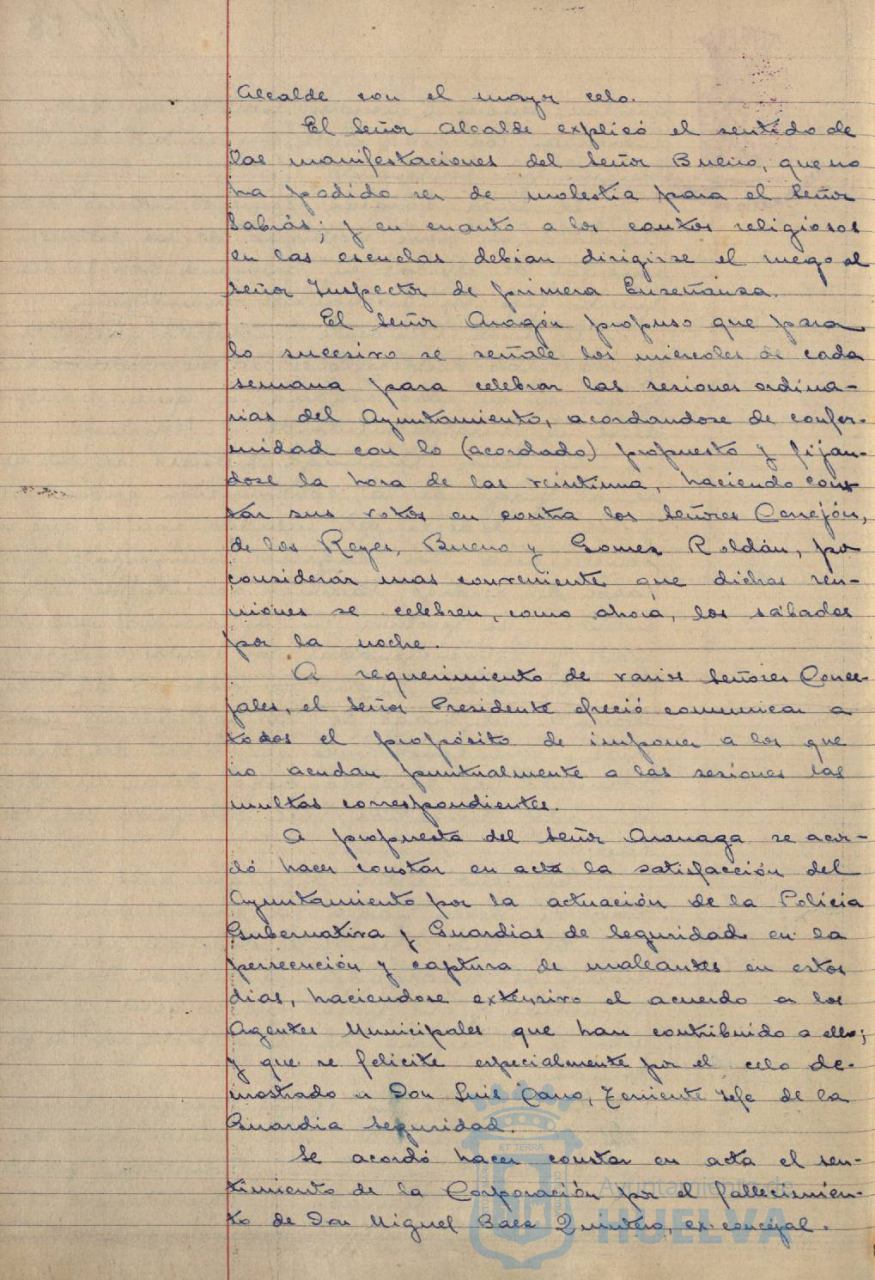 Alcalde con el mayor celo.
El Señor Alcalde explicó el sentido de
las manifestaciones del Señor Bueno, que no
ha podido ser de molestia para el Señor
Sabrás; y en cuanto a los cantos religiosos
en las escuelas debian dirigirse el ruego al
Señor Inspector de primera Enseñanza.
El Señor Aragón propuso que para
lo sucesivo se señale los miercoles de cada
semana para celebrar las sesiones ordina-
rias del Ayuntamiento, acordandose de confor-
midad con lo (acordado) propuesto y fijan-
dose la hora de las veintiuna, haciendo cons
tar sus votos en contra los Señores Cerrejón,
de los Reyes, Bueno y Gomez Roldán, por
considerar mas conveniente que dichas reu-
niones se celebren, como ahora, los sábados
por la noche.
A requerimiento de varios Señores Conce-
jales, el Señor Presidente ofreció comunicar a
todos el propósito de imponer a los que
no acudan puntualmente a las sesiones las
multas correspondientes.
A propuesta del Señor Aranaga se acor-
dó hacer constar en acta la satisfacción del
Ayuntamiento por la actuación de la Policia
Gubernativa y Guardias de Seguridad en la
persecución y captura de maleantes en estos
dias, haciendose extensivo el acuerdo a los
Agentes Municipales que han contribuido a ello;
y que se felicite especialmente por el celo de-
mostrado a Don Luis Cano, Teniente Jefe de la
Guardia Seguridad.
Se acordó hacer constar en acta el sen-
timiento de la Corporación por el fallecimien-
to de Don Miguel Baez Quintero, ex-concejal.
Ayuntamiento de
HUELVA